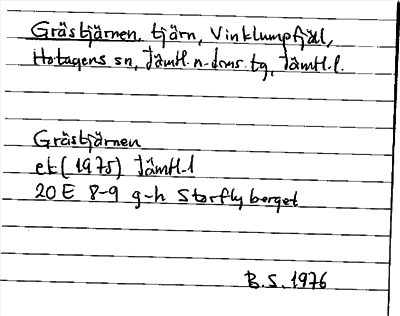 Grästjärnen, tjärn, Vinklumpfjäll,
Hotagens sn, Jämtl. n. doms. tg, Jämtl. l.
Grästjärnen
ek (1975) Jämtl. l
20 E 8-9 g-h Storflyberget
B. S. 1976